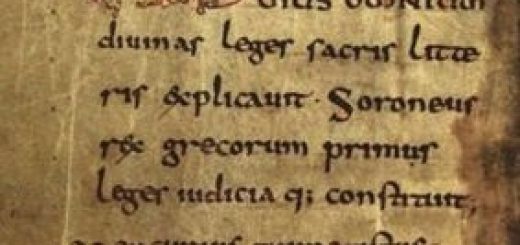 diuinas leges sacris litte
ris explicauit · Foroneus
rex grecorum primus
leges iudicia q; constituit,